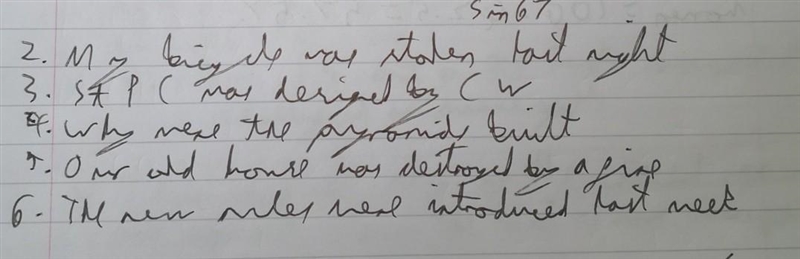 Sin 67
2. My bicycle was stolen last night
3. St P C was designed by C W
4. Why were the pyramids built
5. Our old house was destroyed by a fire
6. The new rules were introduced last week